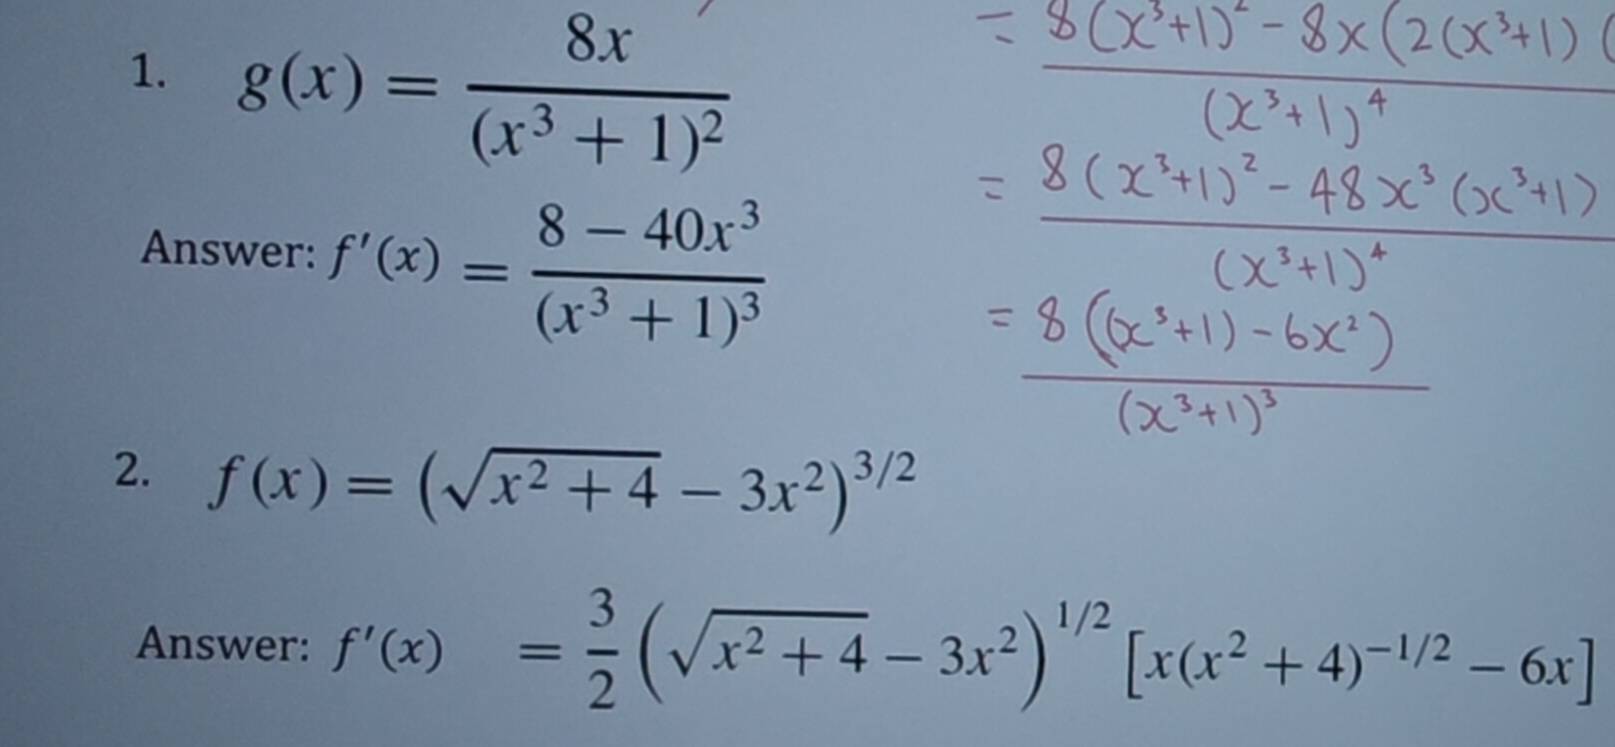 1. g(x) = 8x / (x³ + 1)²
Answer: f′(x) = (8 − 40x³) / (x³ + 1)³
= 8(x³+1)² − 8x(2(x³+1)( / (x³+1)⁴
= 8(x³+1)² − 48x³(x³+1) / (x³+1)⁴
= 8((x³+1) − 6x²) / (x³+1)³
2. f(x) = (√(x² + 4) − 3x²)^3/2
Answer: f′(x) = 3/2 (√(x² + 4) − 3x²)^1/2 [x(x² + 4)^−1/2 − 6x]